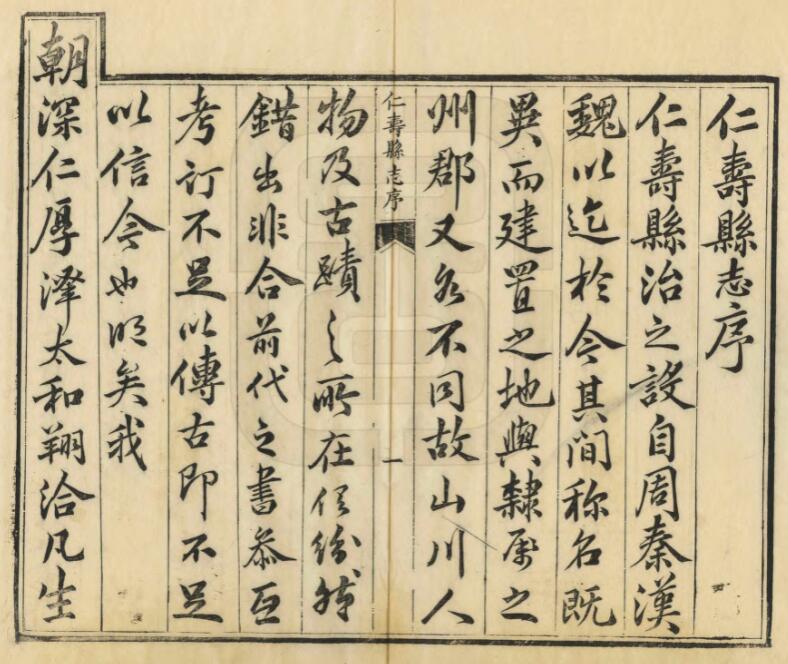 仁壽縣志序
仁壽縣治之設自周秦漢
魏以迄於今其間称名既
異而建置之地與隸屬之
州郡又各不同故山川人
仁壽縣志序
一
物及古蹟之所在紛
錯出非合前代之書叅互
考訂不足以傳古即不足
以信今也明矣我
朝深仁厚澤太和翔洽凡生